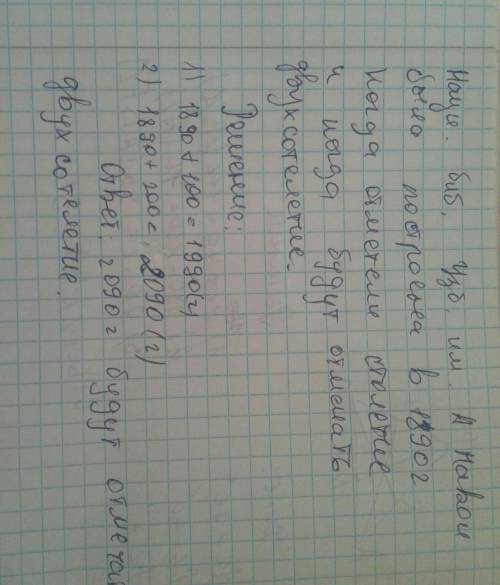 Нацие. биб, Узб, им. А Навои
было построена в 1890г
когда отметели столетие
и когда будут отмечать
двухсотелетие.
Решение:
1) 1890+100=1990(г)
2) 1890+200=2090(г)
Ответ: 2090г будут отмечат
двух сотелетие.